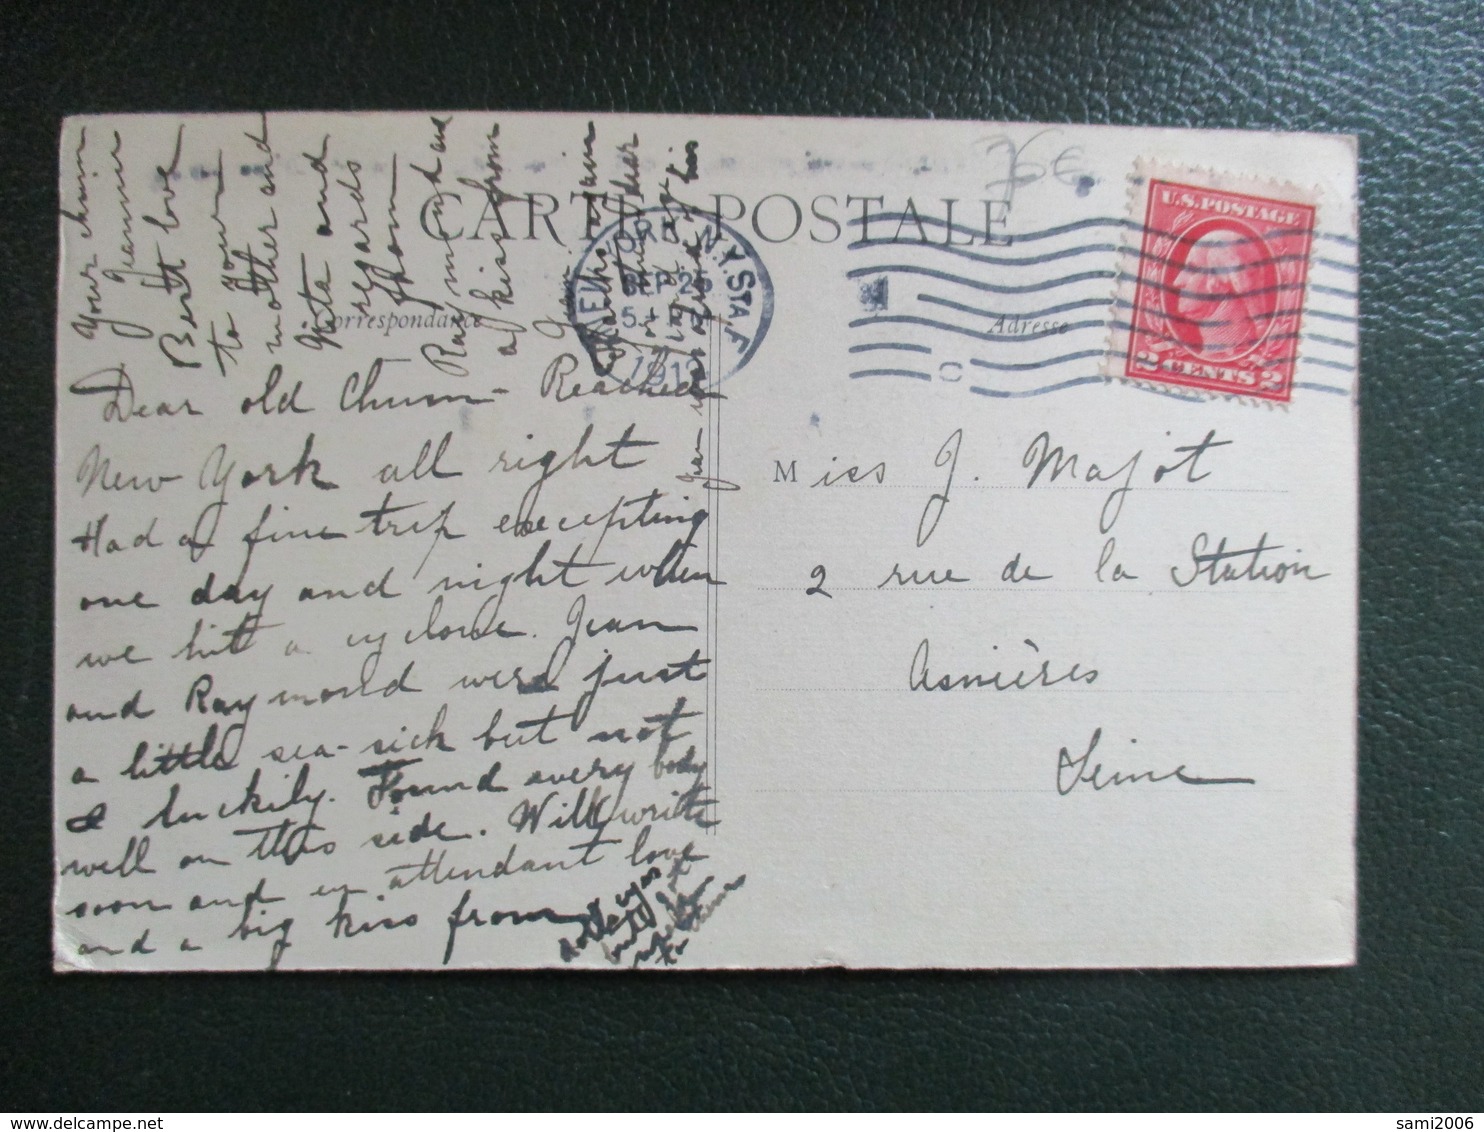 CARTE POSTALE
Correspondance
Adresse
NEW YORK, N.Y. STA.
SEP 25
U.S. POSTAGE
2 CENTS 2
Dear old Chum - Reached
New York all right
Had a fine trip excepting
one day and night when
we hit a cyclone. Jean
and Raymond were just
a little sea-sick but not
I luckily. Found every body
well on this side. Will write
soon and en attendant love
and a big kiss from
Your chum
Jeannie
Best love
to your
mother and
regards
from
Raymond and
a kiss from
Jean
Miss J. Majot
2 rue de la Station
Asnières
Seine
sami2006
delcampe.net